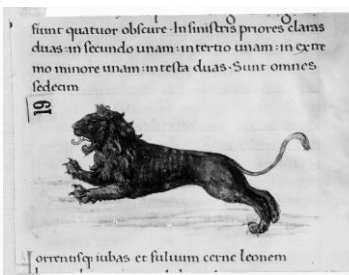 fiunt quatuor obscure · In sinistris priores claras
duas · in secundo unam · in tertio unam · in extre
mo minore unam · in testa duas · Sunt omnes
sedecim
19
orrentisq; iubas et fuluum cerne leonem